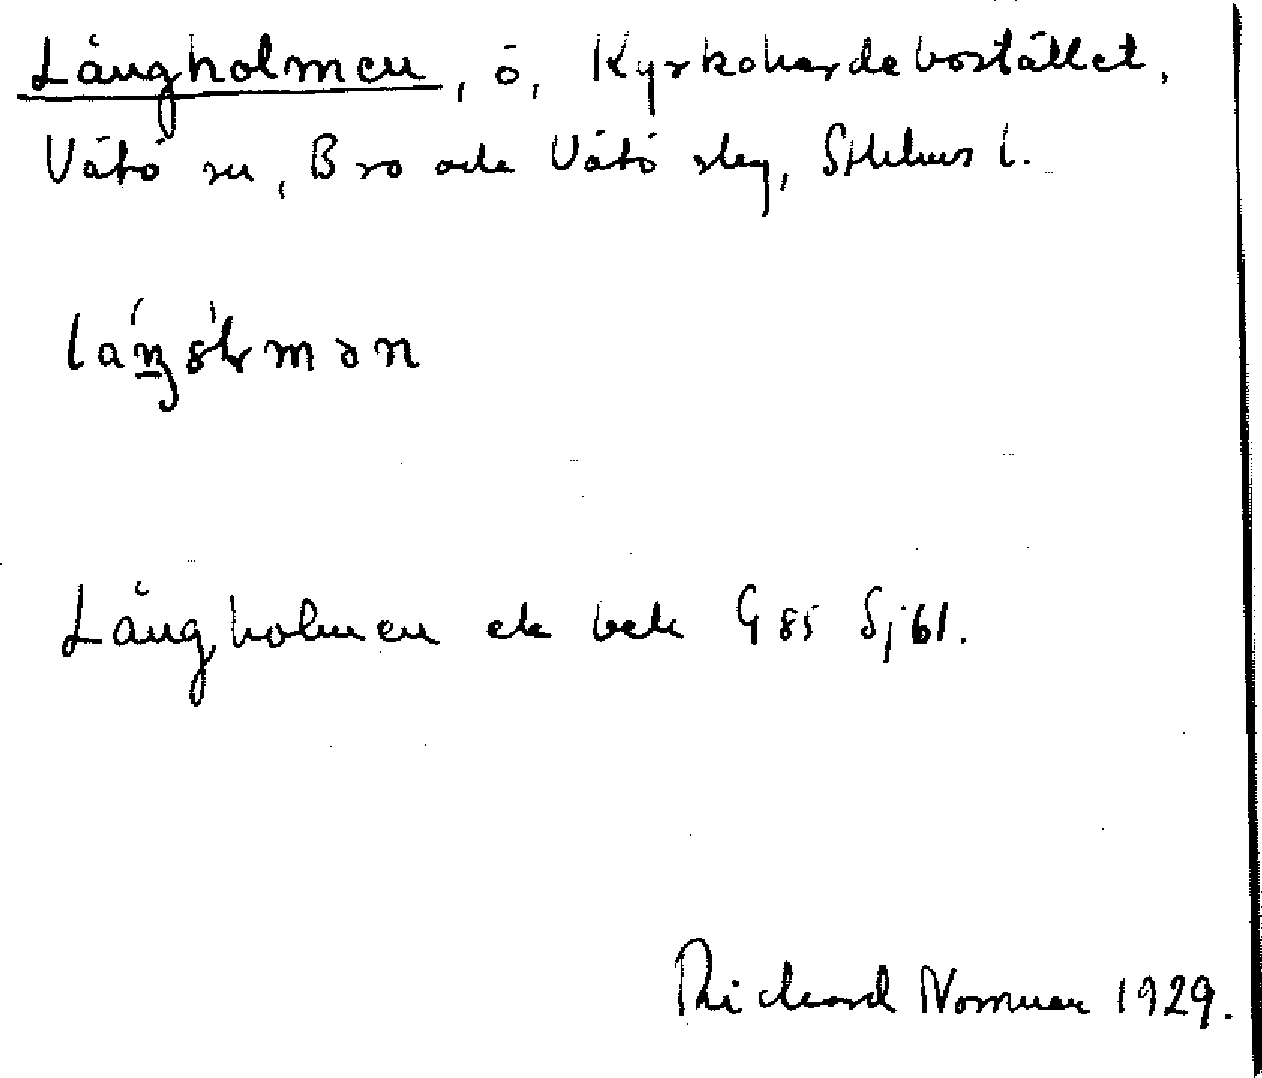 Långholmen, ö, Kyrkoherdebostället,
Vätö sn, Bro och Vätö skg, Sthlms l.
Långholmen ek bek G 85 Sjöbl.
Richard Norrman 1929.